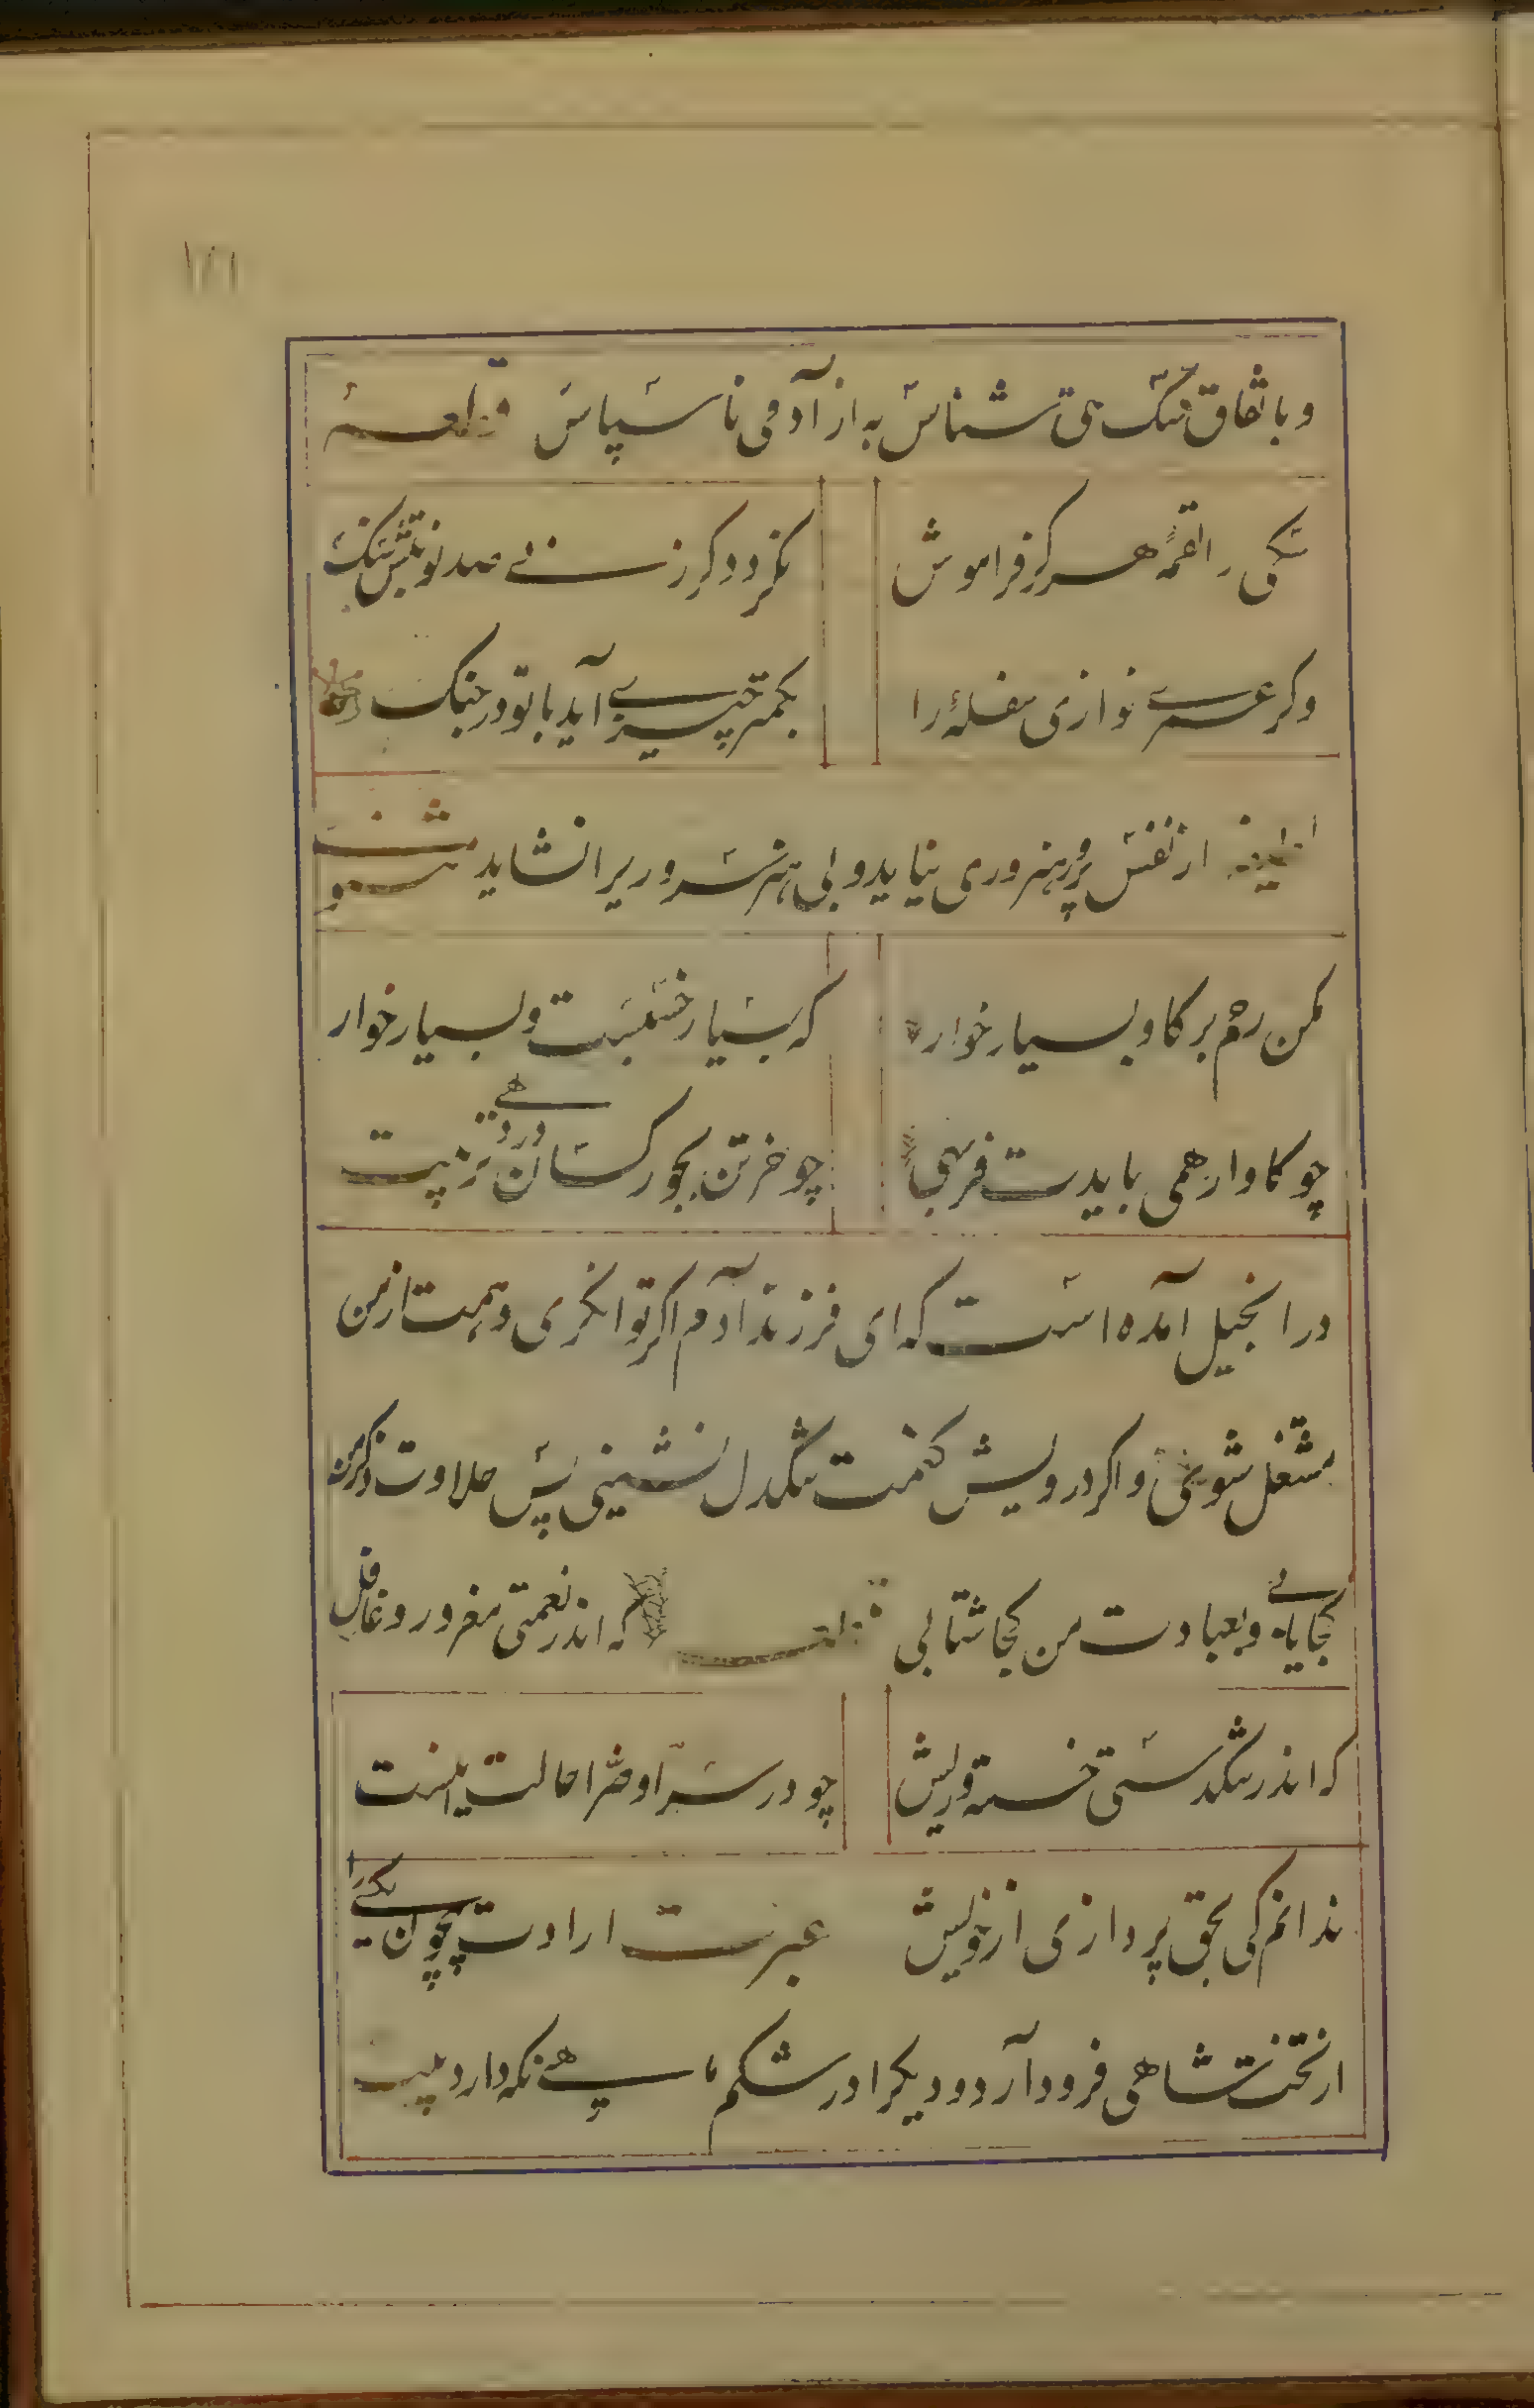 ۱۸۱
وباتفاق سک حق شناس به از آدمی ناسپاس قطعه
سکی را لقمه هرکز فراموش نکردد کر زنی صد نوبتش سنک
وکر عمری نوازی سفلهٔ را بکمتر چیزی آید با تو در جنک
لطیفه از نفس پرور هنروری نیاید و بی هنر سروری را نشاید مثنوی
مکن رحم بر کاو بسیار خوار که بسیار خسبست و بسیار خوار
چو کاو ار همی بایدت فربهی چو خر تن بجور کسان در دهی
در انجیل آمده است که ای فرزند آدم اکر توانکری دهمت از من
مشتغل شوی و اکر درویش کنمت تنکدل نشینی پس حلاوت ذکر من
کجا یابی و بعبادت من کجا شتابی قطعه که اندر نعمتی مغرور و غافل
که اندر تنکدستی خسته و ریش چو در سرا و ضرا حالت اینست
ندانم کی بحق پردازی از خویش عبرت ارادت بیچون یکی را
از تخت شاهی فرود آرد و دیکرا در شکم ماهی نکه دارد بیت